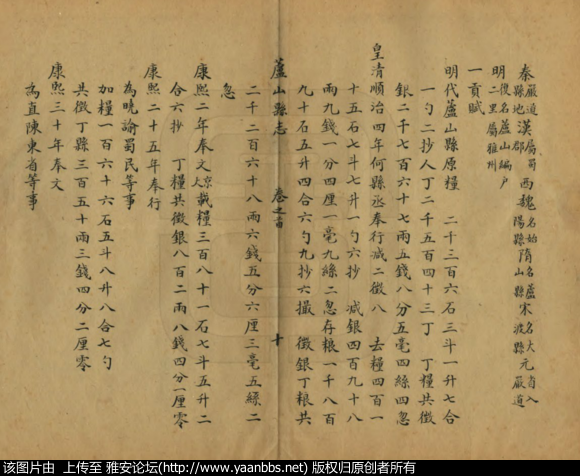 秦嚴道縣地 漢屬蜀郡 西魏名始陽縣 隋名蘆山縣 宋名大渡縣 元省入嚴道
明復名蘆山編戶二里屬雅州
一貢賦
明代蘆山縣原糧 二千三百六石三斗一升七合
一勺二抄人丁二千五百四十三丁 丁糧共徵
銀二千七百六十七兩五錢八分五毫四絲四忽
皇清順治四年何縣丞奉行減二徵八 去糧四百一
十五石七斗七升一勺六抄 減銀四百九十八
兩九錢一分四厘一毫九絲二忽存粮一千八百
九十石五斗四合六勺九抄六撮 徵銀丁粮共
蘆山縣志 卷之首 十
二千二百六十八兩六錢五分六厘三毫五絲二
忽
康熙二年奉文 載糧三百八十一石七斗五升二
合六抄 丁糧共徵銀八百二兩八錢四分一厘零
康熙二十五年奉行
為曉諭蜀民等事
加糧一百六十六石五斗八升八合七勺
共徵丁縣三百五十兩三錢四分二厘零
康熙三十年奉文
為直陳東省等事
该图片由 上传至 雅安论坛(http://www.yaanbbs.net) 版权归原创者所有